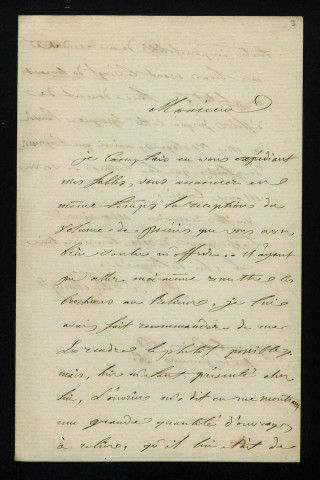 Monsieur
je comptais en vous expédiant
mes fables, vous annoncer en
même temps la réception du
volume de poésies que vous avez
bien voulu m'offrir. - N'ayant
pu aller moi même remettre les
brochures au Relieur, je lui
avais fait recommander de me
les rendre le plutot possible,
mais, hier m'étant présenté chez
lui, l'ouvrier m'a dit en me montrant
une grande quantité d'ouvrages
à relier, qu'il lui était de